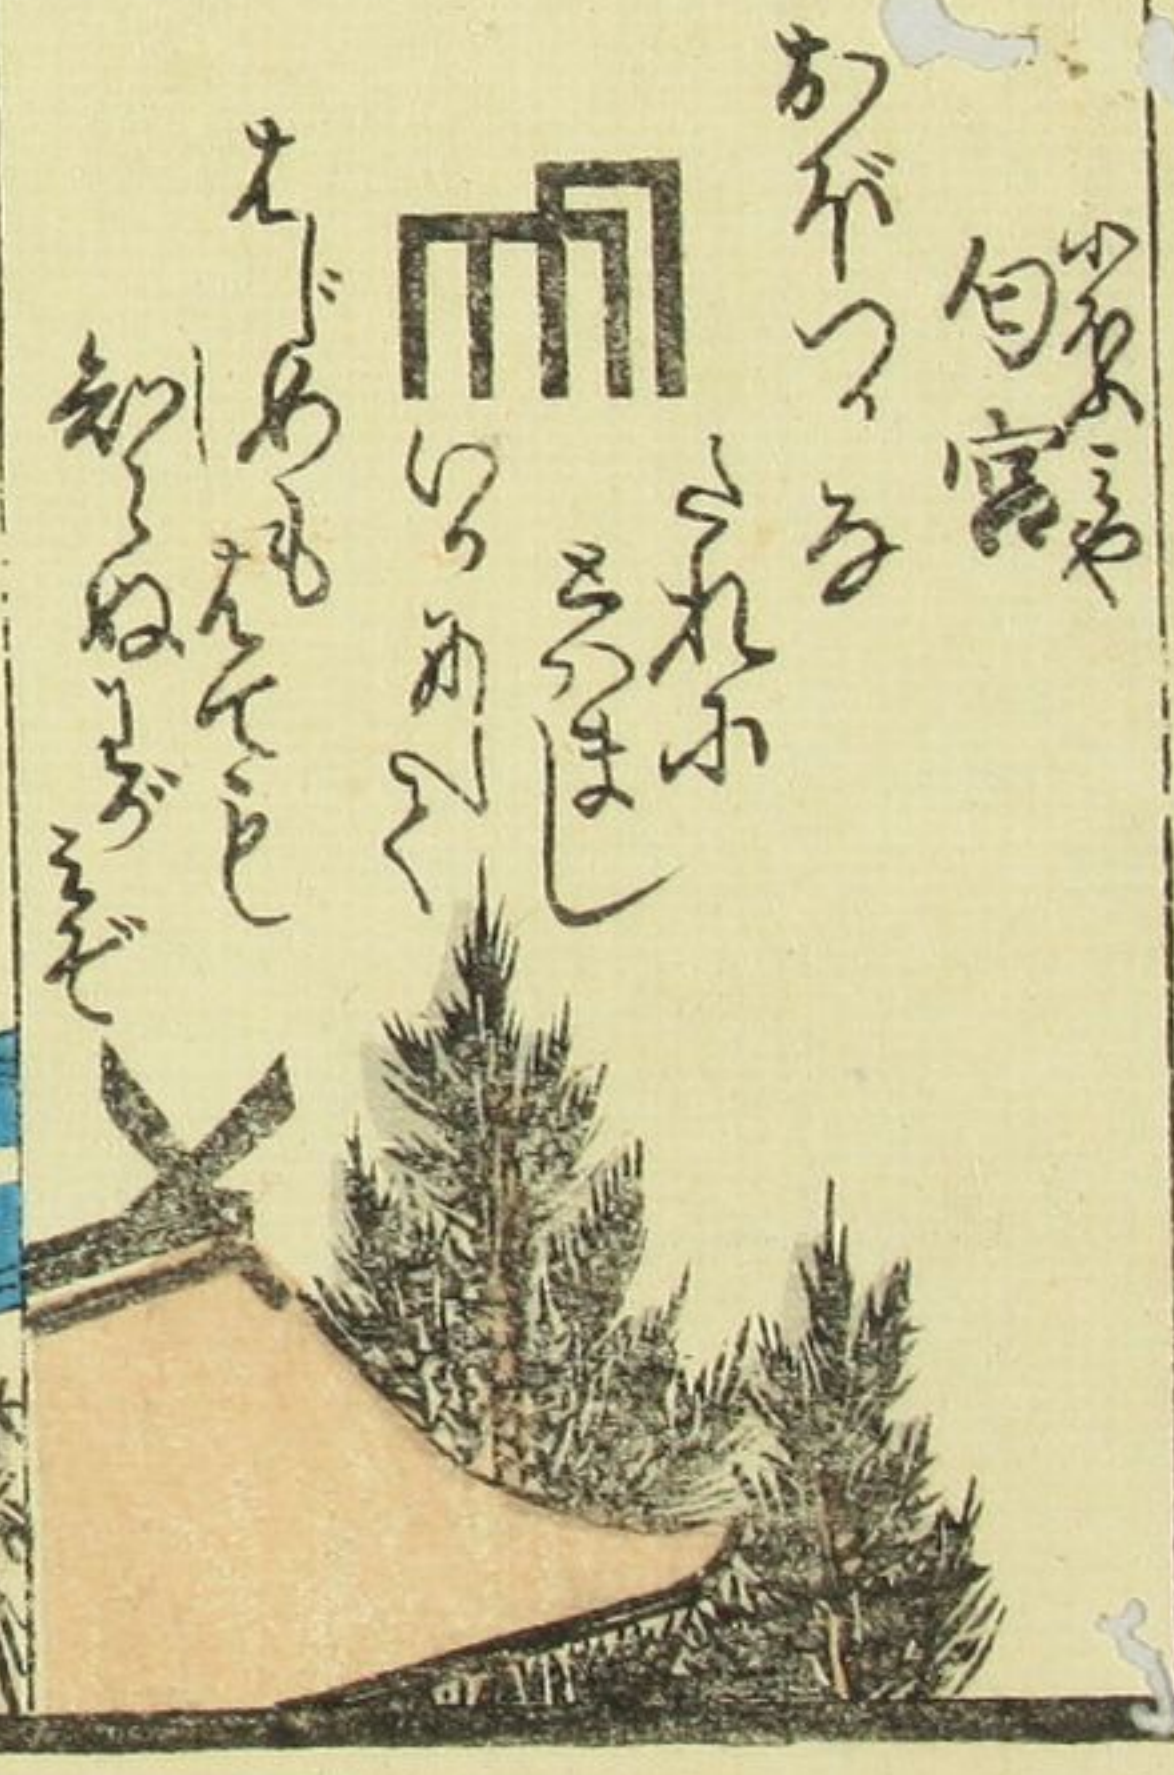 匂宮
にほふみや
おぼつかな
たれに
とはまし
いかにして
はじめも
はても
しらぬわが
みぞ